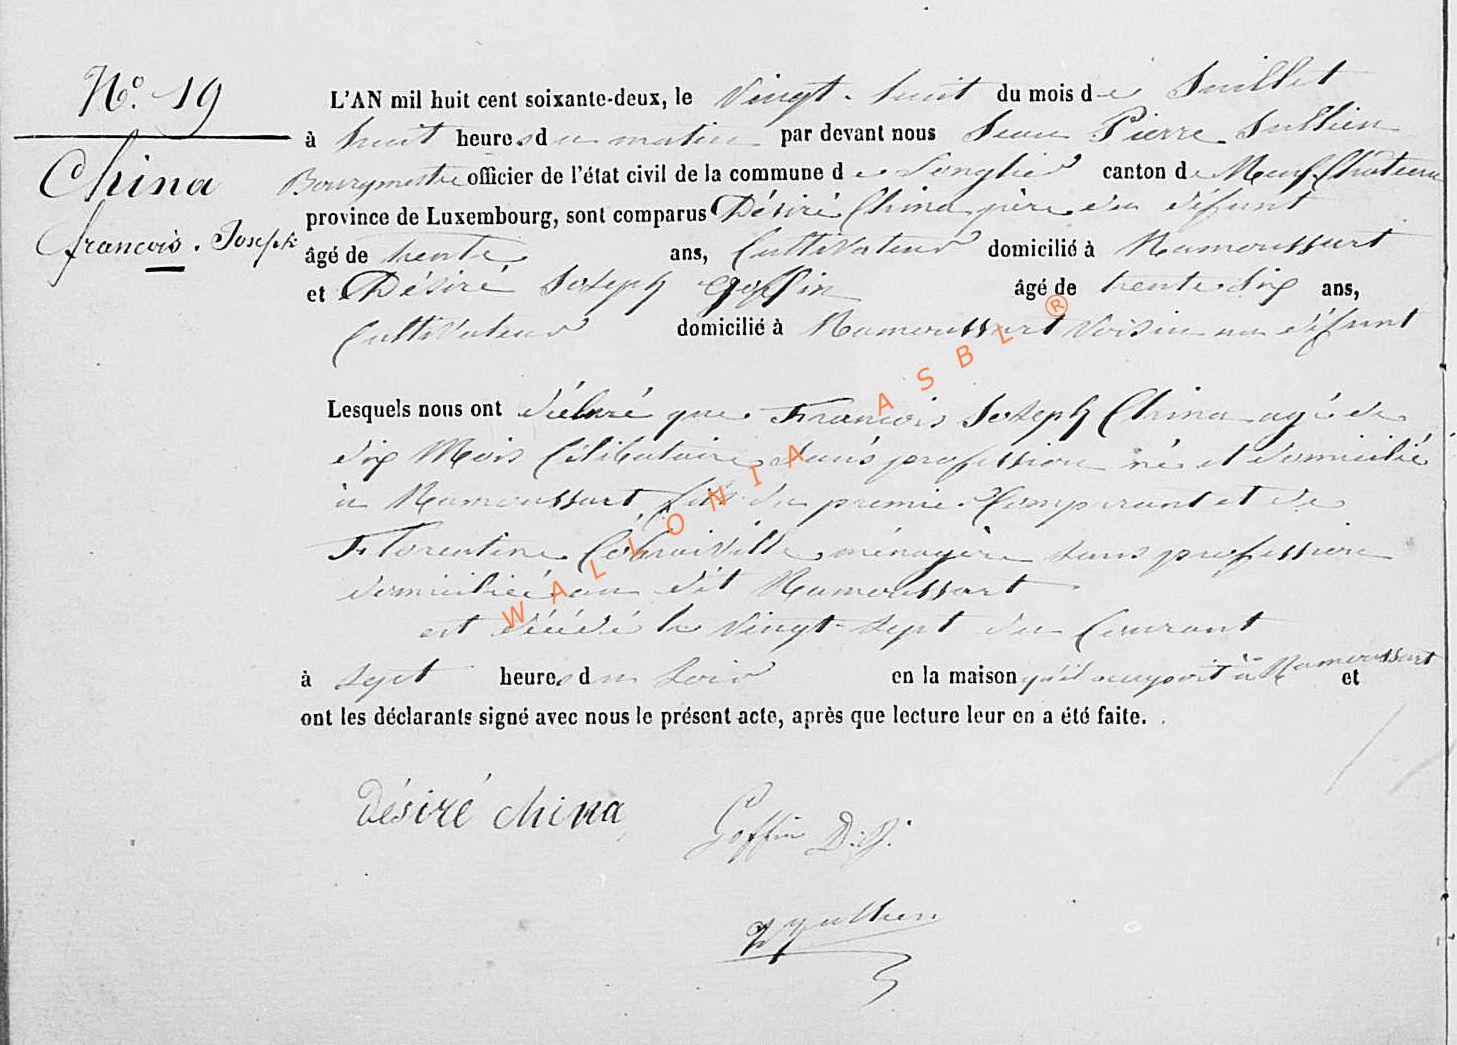 N.o 19
China
françois. Joseph
L'AN mil huit cent soixante-deux, le Vingt-huit du mois de Juillet
à huit heures du matin par devant nous Jean Pierre Jullien
Bourgmestre officier de l'état civil de la commune de Longlier canton de Neufchâteau
province de Luxembourg, sont comparus Désiré China père du défunt
âgé de trente ans, Cultivateur domicilié à Namoussart
et Désiré Joseph Goffin âgé de trente dix ans,
Cultivateur domicilié à Namoussart Voisin au défunt
Lesquels nous ont déclaré que François Joseph China agé de
dix Mois Célibataire sans profession né et domicilié
à Namoussart, fils du premier Comparant et de
Florentine ménagère sans profession
domiciliée au dit Namoussart
est décédé le Vingt-sept du Courant
à sept heures du soir en la maison qu'il occupoit à Namoussart et
ont les déclarants signé avec nous le présent acte, après que lecture leur en a été faite.
Désiré china
Goffin D.J.
Jullien
WALLONIA ASBL ®